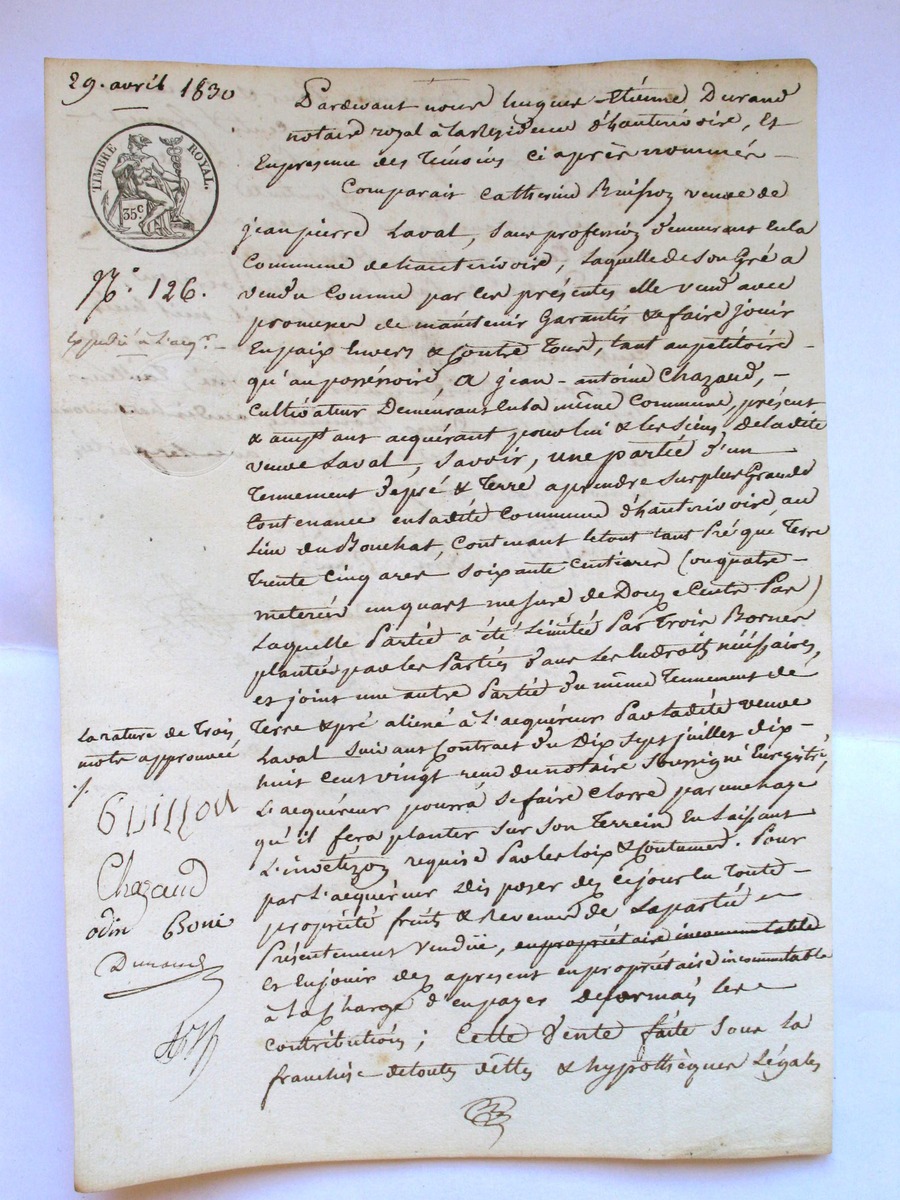 29. avril 1830
TIMBRE ROYAL.
35c
N.° 126.
Expedié à l'acqr.
Pardevant nous hugues Etienne Durand
notaire royal à la Residence d'hauterivoire, Et
En presence des Témoins ci après nommés
Comparait Catherine Buisson veuve de
jean pierre Laval, sans profession demeurant en la
Commune de hauterivoire, Laquelle de son Gré a
vendu Comme par ces présentes elle vend avec
promesse de maintenir Garantir & faire jouir
En paix Envers & Contre Tous, tant au pétitoire
qu'au possessoire, a jean-antoine Chazaud,
Cultivateur Demeurant en la même Commune, présent
& acceptant acquérant pour lui & les siens de ladite
veuve Laval, savoir, une partie d'un
Tennement de pré & Terre a prendre sur plus Grande
Contenance en ladite Commune d'hauterivoire au
Lieu du Bouchat, Contenant le tout tant Pré que Terre
Trente Cinq ares soixante Centiares (ou quatre
meterée un quart mesure de Donzy
Laquelle Partie a été Limitée Par Trois Bornes
plantées par les Parties dans les Endroits nécéssaires,
et joint une autre Partie du même Tennement de
Terre & pré aliené à L'acquéreur Par ladite veuve
Laval suivant Contract du Dix sept juillet dix
huit Cent vingt rendu notaire soussigné Enregistré,
L'acquéreur pourra se faire Clorre par une haye
qu'il fera planter sur son Terrein En Laissant
requise Par les loix & Coutumes. Pour
par L'acquéreur disposer dez ce jour En Toute
propriété fruits & Revenus de La partie
Présentement vendue, en propriétaire incommutable
et En jouir dez apresent en propriétaire incommutable
à la Charge d'en payer désormais les
contributions; Cette Vente faite sous la
franchise de toutes dettes & hypothèques Légales
La rature de Trois
mots approuvée
Guillon
Chazaud
odin Boni
Durand